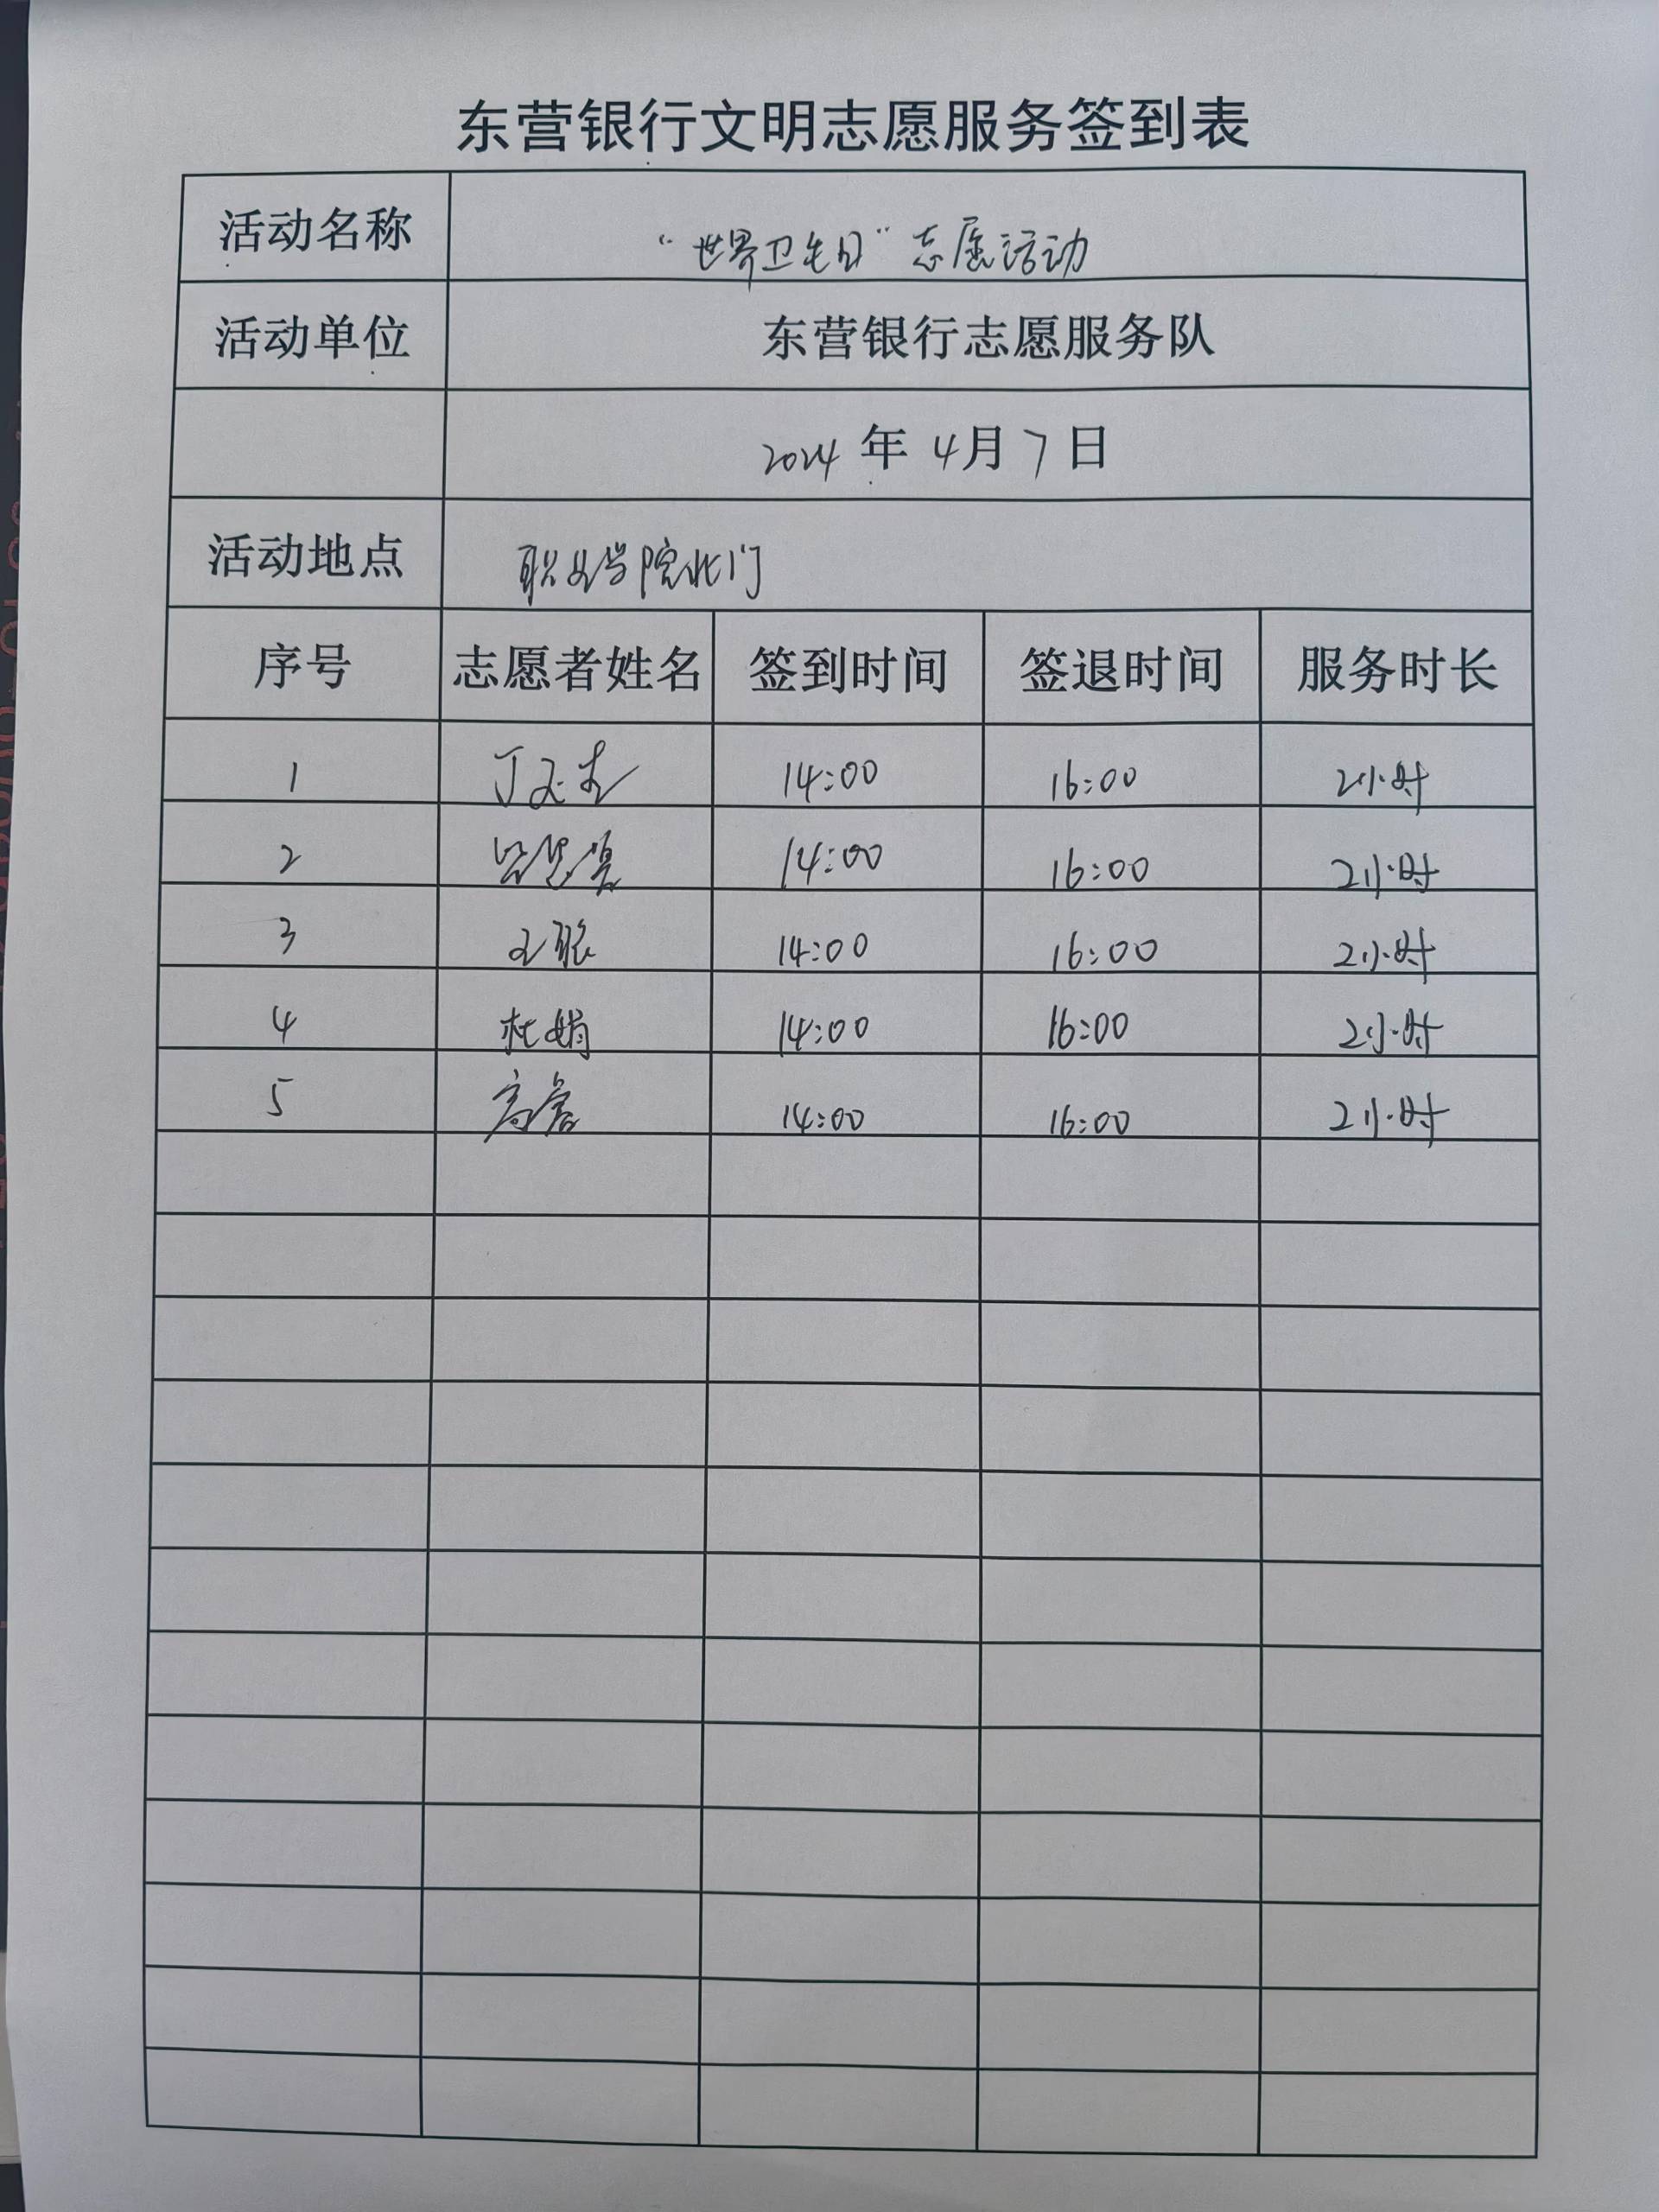 东营银行文明志愿服务签到表
活动名称 “世界卫生日”志愿活动
活动单位 东营银行志愿服务队
2024 年 4月 7 日
活动地点 职业学院北门
序号 志愿者姓名 签到时间 签退时间 服务时长
1 14:00 16:00 2小时
2 14:00 16:00 2小时
3 14:00 16:00 2小时
4 杜娟 14:00 16:00 2小时
5 14:00 16:00 2小时